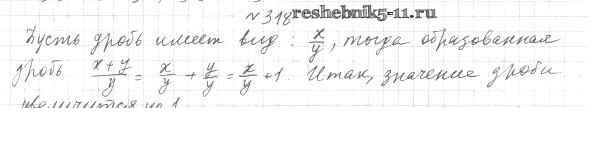 № 318
reshebnik5-11.ru
Пусть дробь имеет вид: x/y, тогда образованная
дробь (x+y)/y = x/y + y/y = x/y + 1. Итак, значение дроби
увеличится на 1